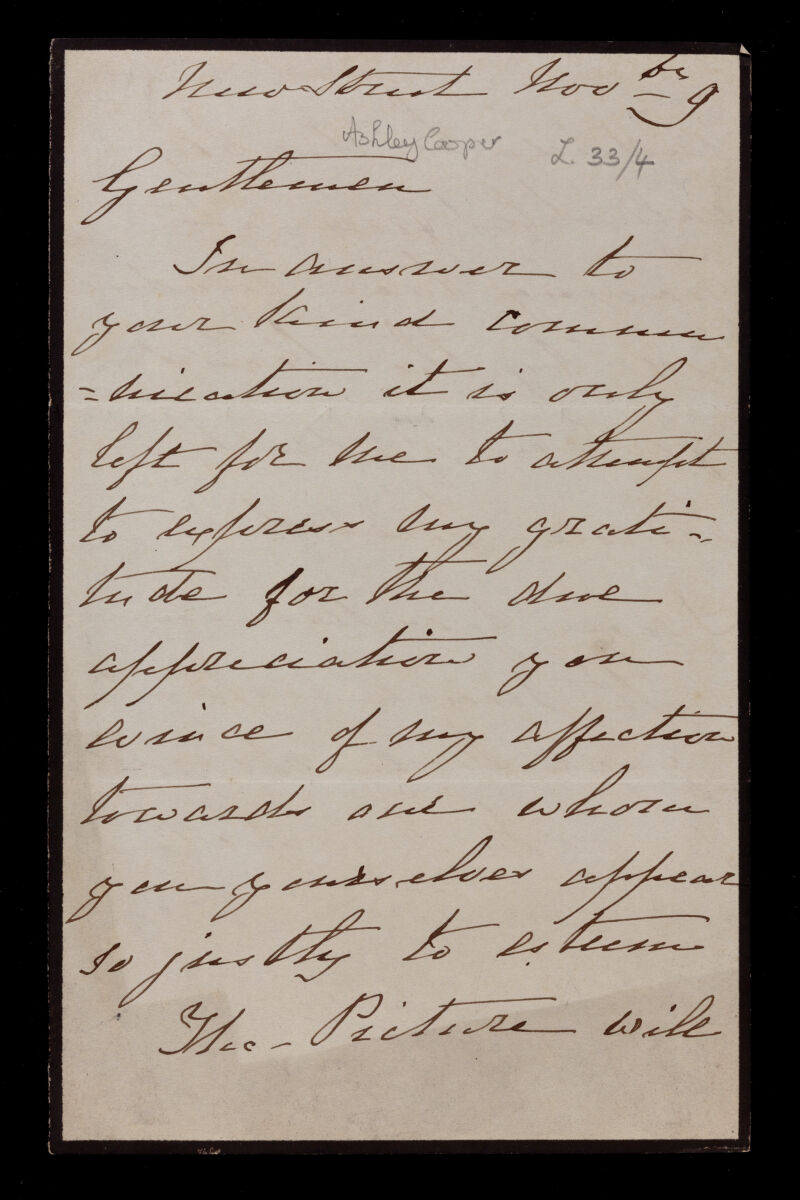 New Street Nov br 9
Ashley Cooper L. 33/4
Gentlemen
In answer to
your kind commu
=nication it is only
left for me to attempt
to express my grati-
tude for the due
appreciation you
evince of my affection
towards one whom
you yourselves appear
so justly to esteem
The - Picture will